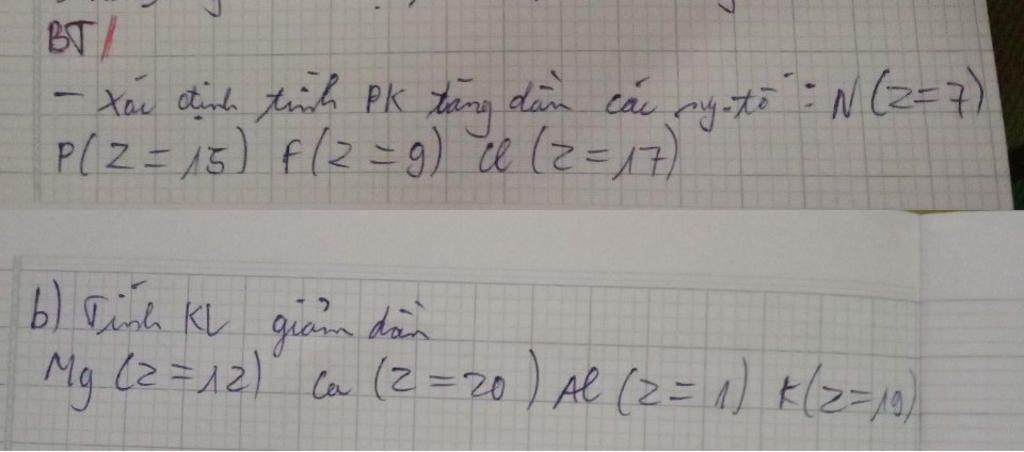 BT/
- Xác định tính PK tăng dần các ng-tố : N (Z=7)
P(Z=15) F(Z=9) Cl (Z=17)
b) Tính KL giảm dần
Mg (Z=12) Ca (Z=20) Al (Z=1) K(Z=19)